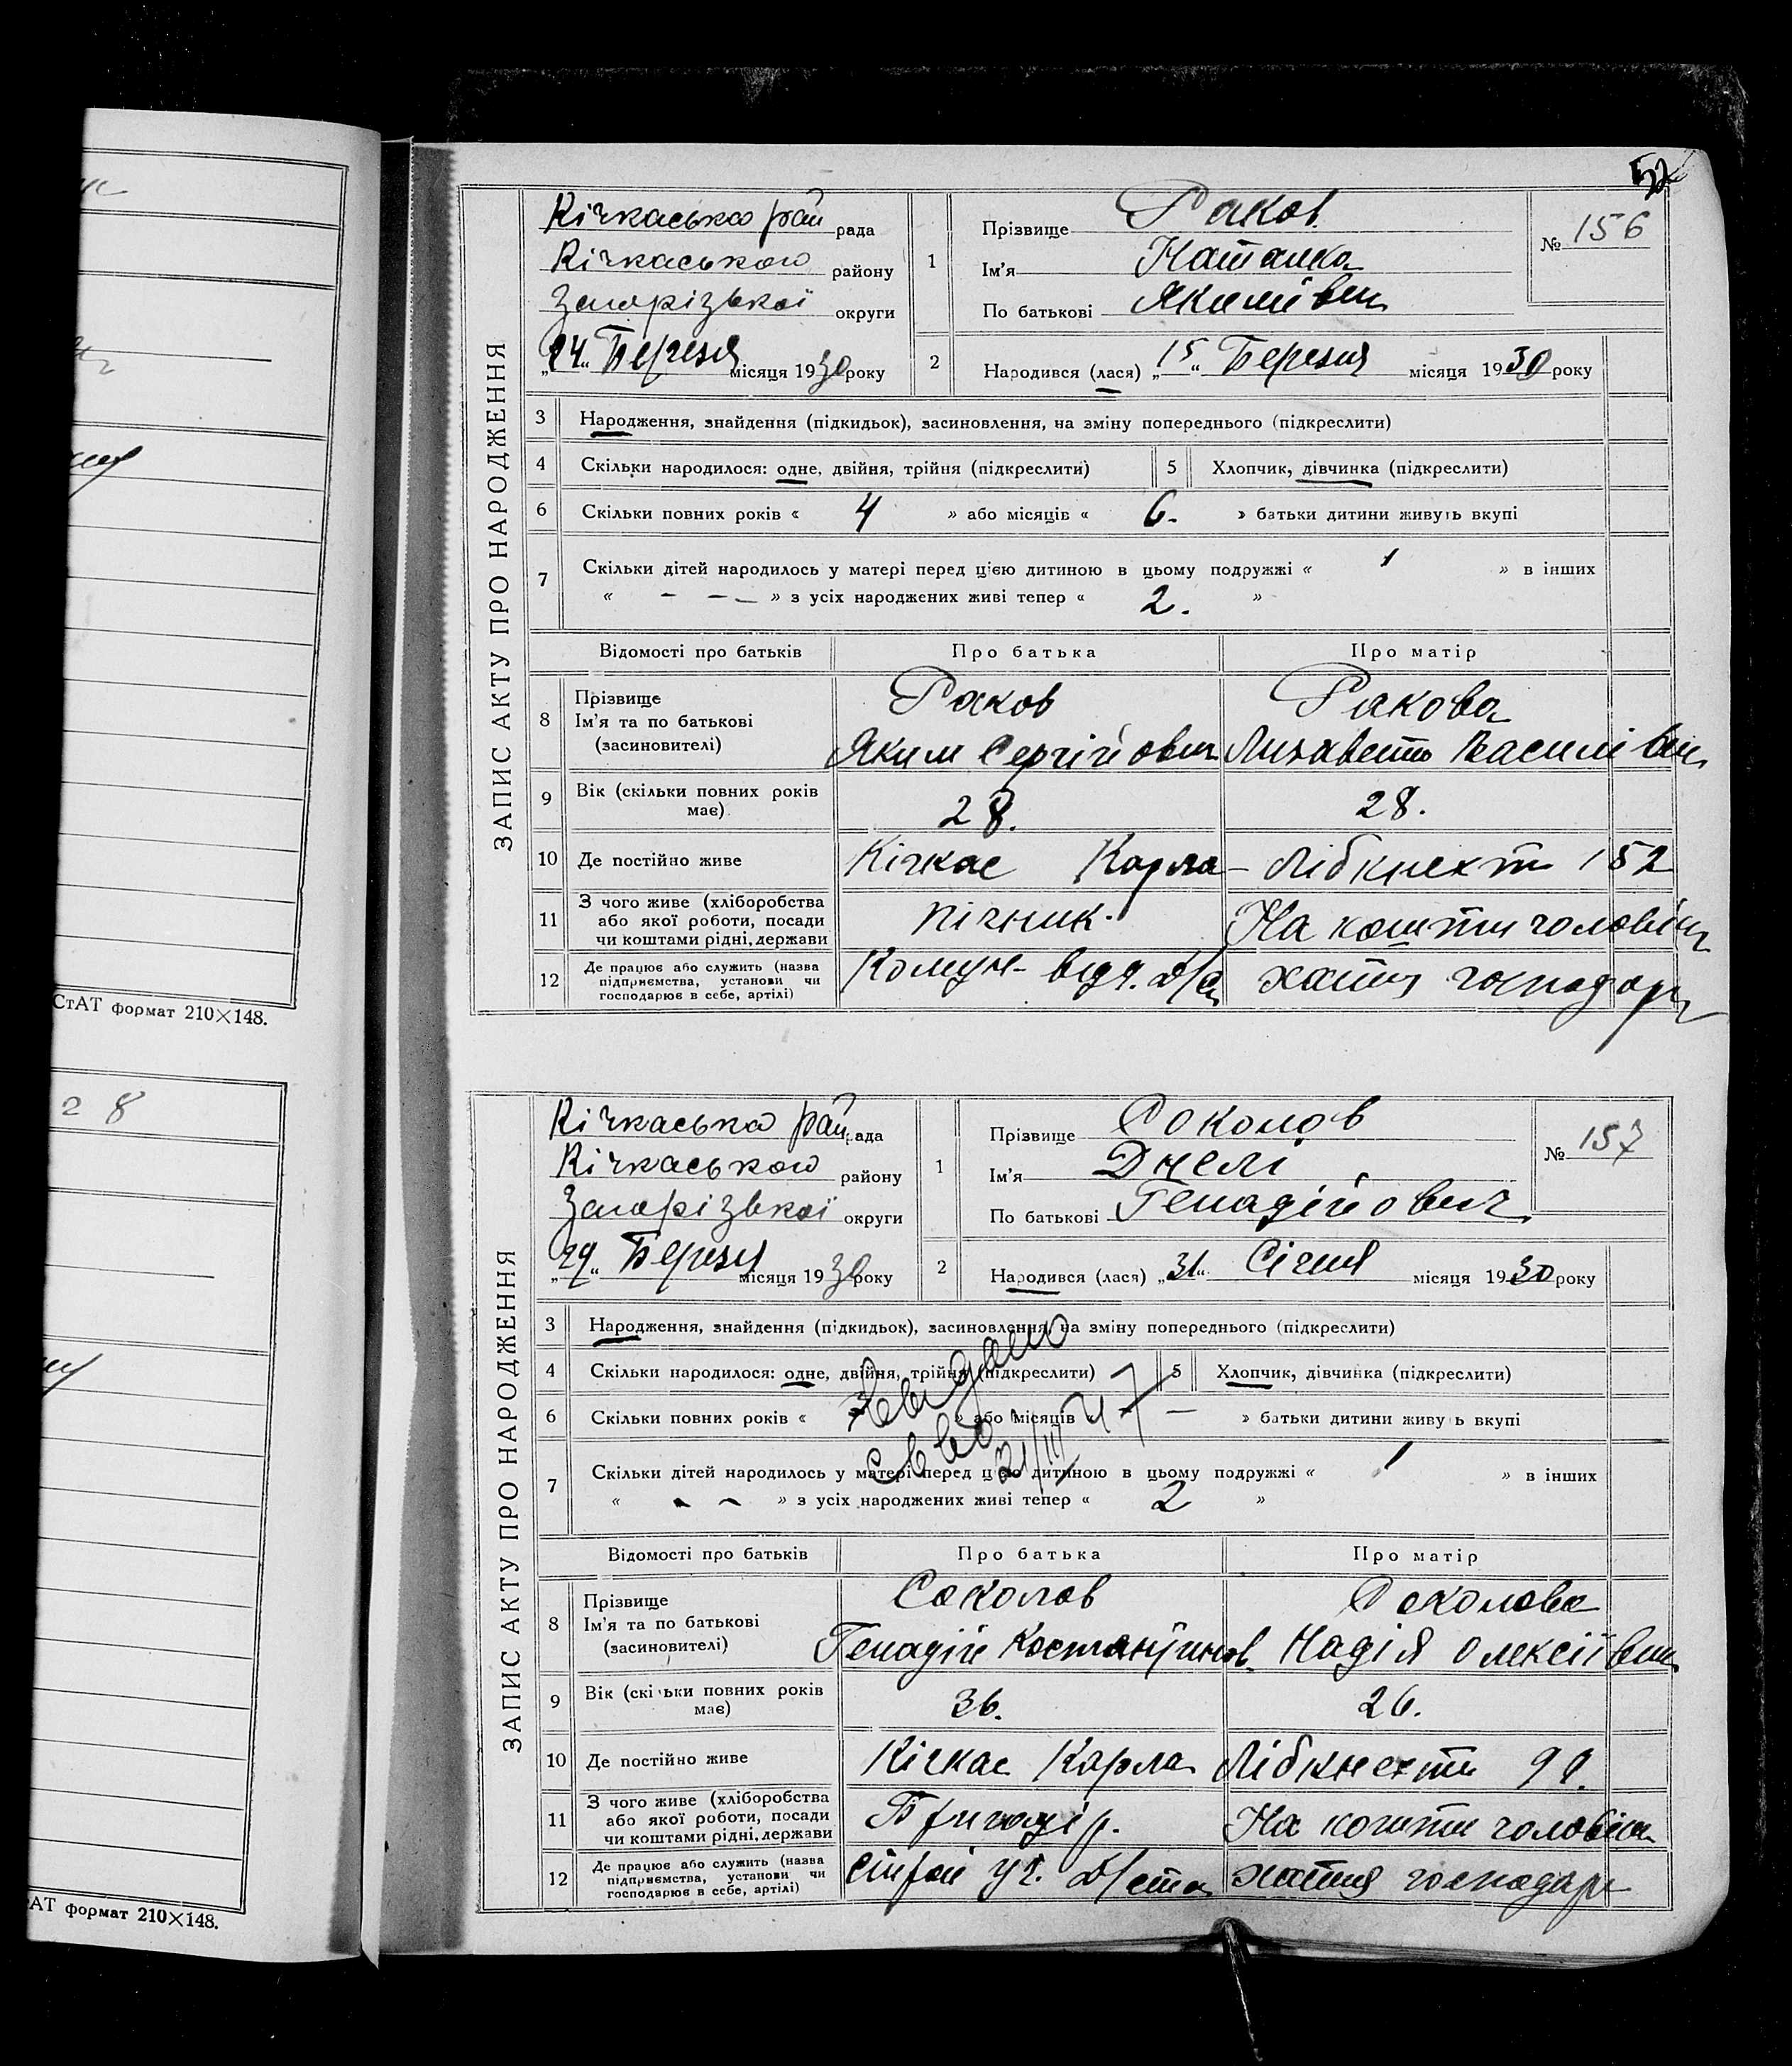 52
ЗАПИС АКТУ ПРО НАРОДЖЕННЯ
Кічкаська рай рада
Кічкаського району
Запорізької округи
„24“ Березня місяця 1930 року
1 Прізвище Раков
Ім'я Наталка
По батькові Якимівна
№ 156
2 Народився (лася) „15“ Березня місяця 1930 року
3 Народження, знайдення (підкидьок), засиновлення, на зміну попереднього (підкреслити)
4 Скільки народилося: одне, двійня, трійня (підкреслити) 5 Хлопчик, дівчинка (підкреслити)
6 Скільки повних років « 4 » або місяців « 6. » батьки дитини живуть вкупі
7 Скільки дітей народилось у матері перед цією дитиною в цьому подружжі « 1 » в інших
« – – – » з усіх народжених живі тепер « 2. »
Відомості про батьків Про батька Про матір
8 Прізвище Раков Ракова
Ім'я та по батькові
(засиновителі) Яким Сергійович Лизавета Василівна
9 Вік (скільки повних років має) 28. 28.
10 Де постійно живе Кічкас Карла – Лібкнехта 152
11 З чого живе (хліборобства
або якої роботи, посади
чи коштами рідні, держави Пічник. На кошти чоловіка
12 Де працює або служить (назва
підприємства, установи чи
господарює в себе, артілі) Комун– відд. Д/ба хатня господарк
СтАТ формат 210×148.
28
ЗАПИС АКТУ ПРО НАРОДЖЕННЯ
Кічкаська рай рада
Кічкаського району
Запорізької округи
„29“ Березня місяця 1930 року
1 Прізвище Соколов
Ім'я Днелі
По батькові Генадійович
№ 157
2 Народився (лася) „31“ Січня місяця 1930 року
3 Народження, знайдення (підкидьок), засиновлення, на зміну попереднього (підкреслити)
4 Скільки народилося: одне, двійня, трійня (підкреслити) 5 Хлопчик, дівчинка (підкреслити)
6 Скільки повних років « » або місяців « – » батьки дитини живуть вкупі
21/III 47
7 Скільки дітей народилось у матері перед цією дитиною в цьому подружжі « 1 » в інших
« – – » з усіх народжених живі тепер « 2 »
Відомості про батьків Про батька Про матір
8 Прізвище Соколов Соколова
Ім'я та по батькові
(засиновителі) Генадій Костантинов. Надія Олексіївна
9 Вік (скільки повних років має) 36. 26.
10 Де постійно живе Кічкас Карла Лібкнехта
11 З чого живе (хліборобства
або якої роботи, посади
чи коштами рідні, держави Бригадір. На кошти чоловіка
12 Де працює або служить (назва
підприємства, установи чи
господарює в себе, артілі) хатня господарк
АТ формат 210×148.